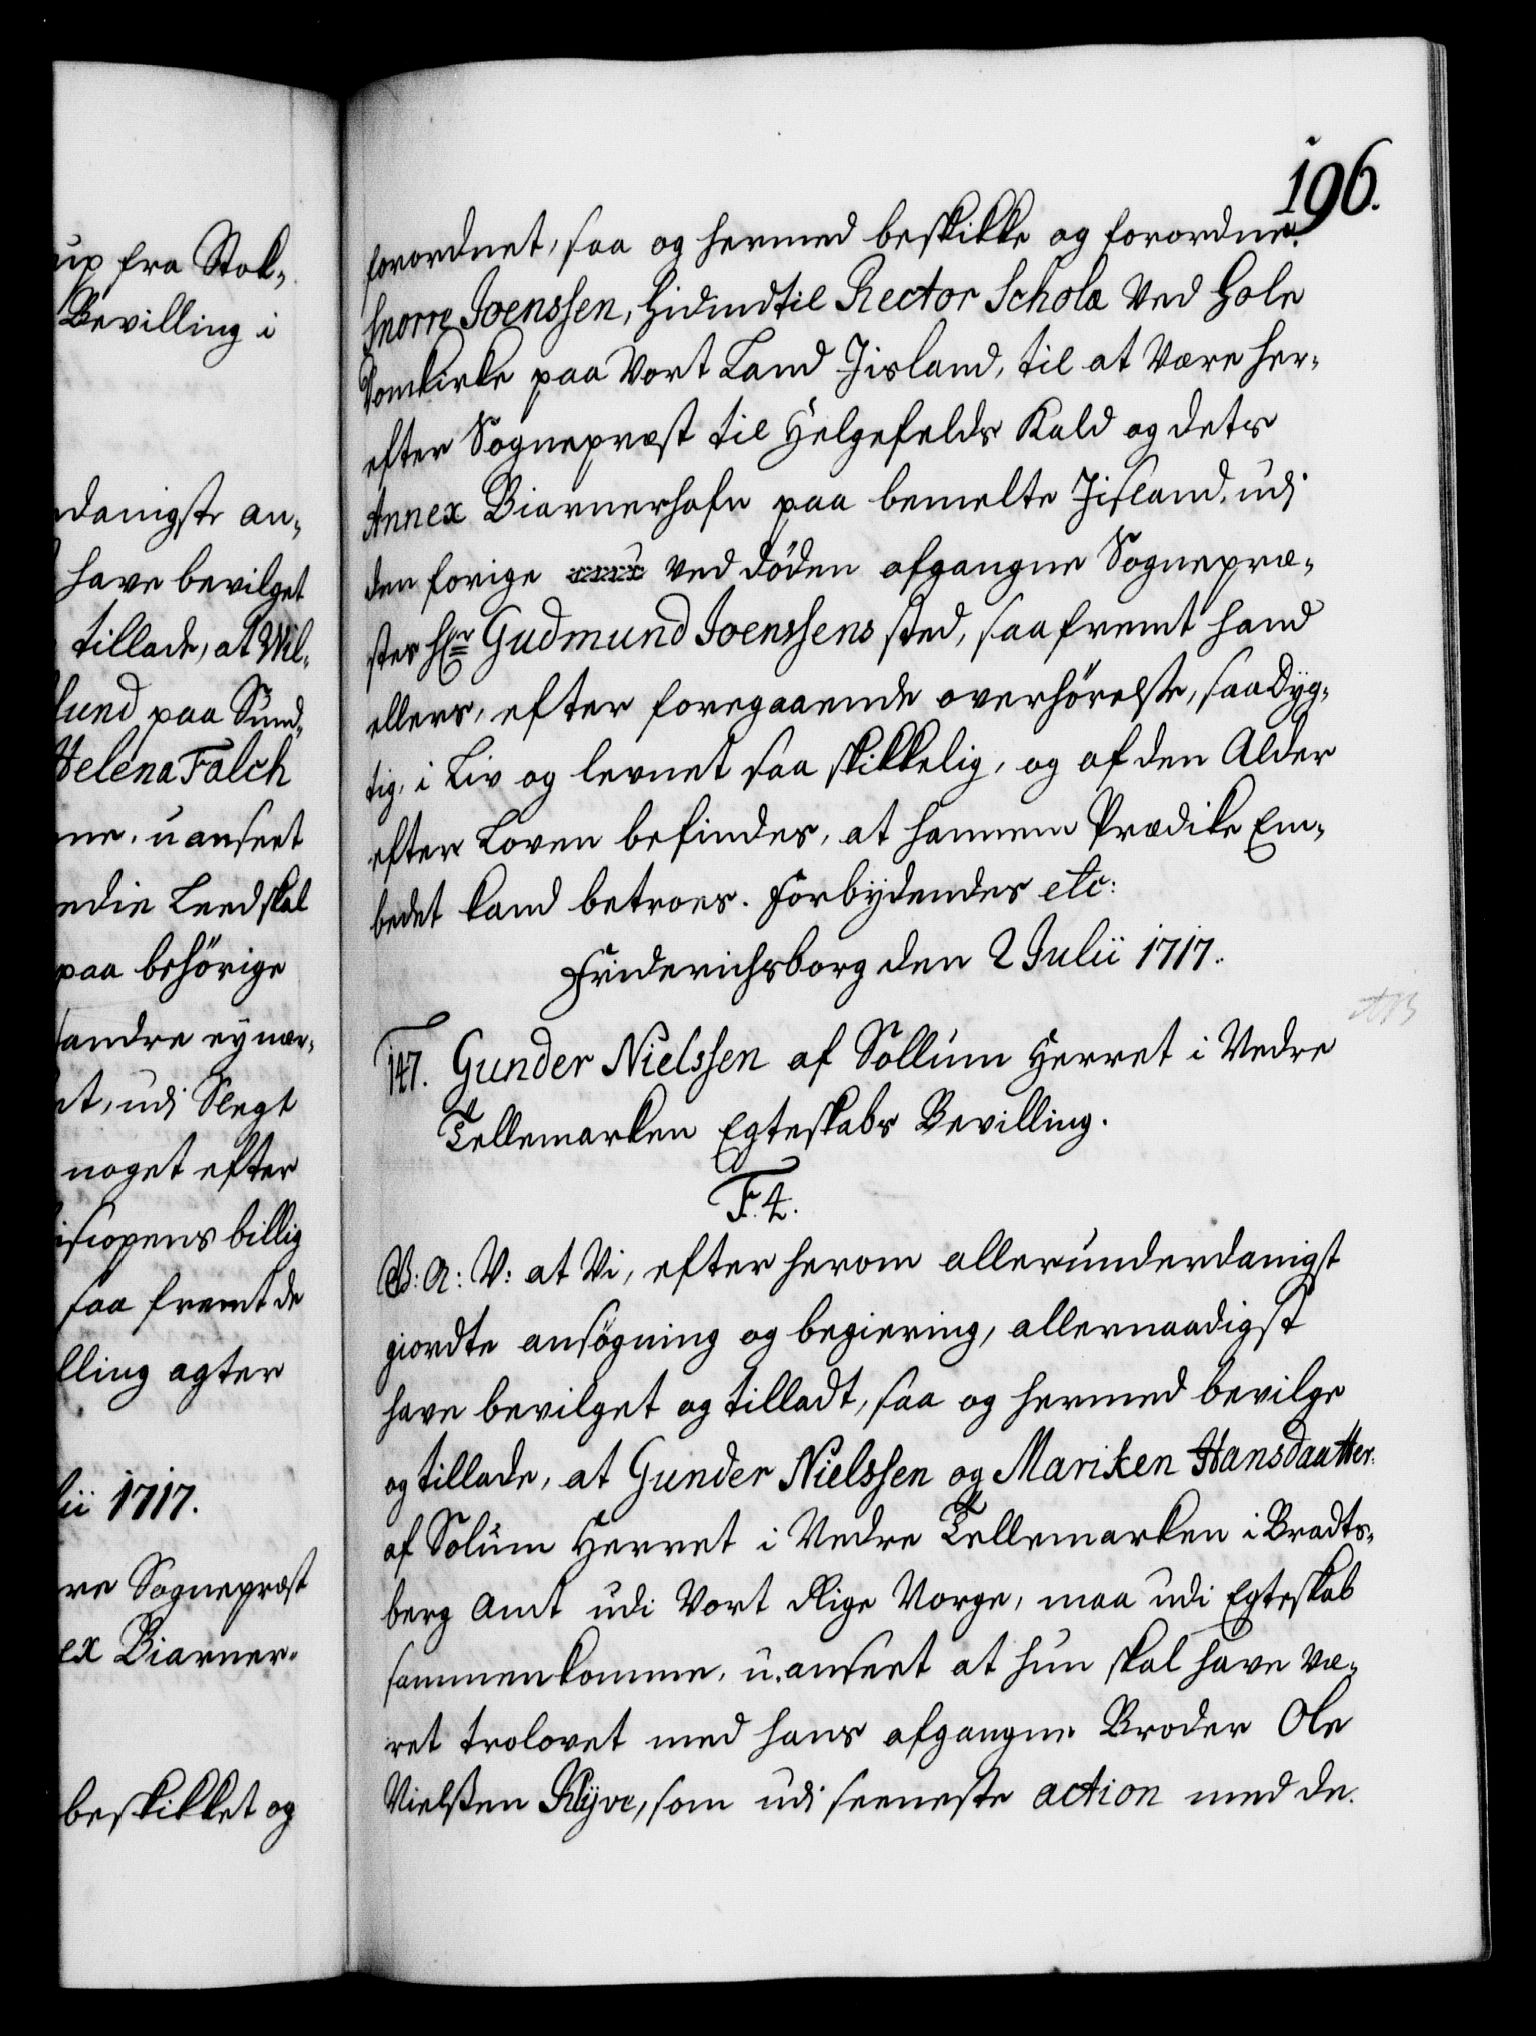 up fra Stok-
Bevilling i
danigste an-
have bevilget
tillade, at Wil-
lund paa Sund-
Helena Falch
me, uanseet
edie Leed skal
paa behörige
andre eynær-
t, udi Slegt
noget efter
iscopens billig
saa fremt de
lling agter
lii 1717.
re Sognepræst
ex Biarner-
beskikket og
196.
forordnet, saa og hermed beskikke og forordne
Snorre Joenssen, hidindtil Rector Scholæ ved Hole
Domkirke paa Vort Land Jisland, til at være her-
efter Sognepræst til Helgefelds Kald og dets
Annex Biarnerhafn paa bemelte Jisland, udi
den forige ved döden afgangne Sognepræ-
stes Hr Gudmund Joenssens sted, saafremt hand
ellers, efter foregaaende overhörelse, saa dyg-
tig, i Liv og levnet saa skikkelig, og af den Alder
efter Loven befindes, at hannem Prædike Em-
bedet kand betroes. Forbydendes etc:
Friderichsborg den 2 Julii 1717.
147. Gunder Nielssen af Sollum Herret i Nedre
Tellemarken Egteskabs Bevilling.
F. 4.
G: A: V: at Vi, efter herom allerunderdanigst
giordte ansögning og begiering, allernaadigst
have bevilget og tilladt, saa og hermed bevilge
og tillade, at Gunder Nielssen og Mariken Hansdaatter
af Solum Herret i Nedre Tellemarken i Bradts-
berg Amt udi Vort Rige Norge, maa udi Egteskab
sammenkomme, uanseet at hun skal have væ-
ret trolovet med hans afgangne Broder Ole
Nielsen Klyve, som udi seeneste action med de